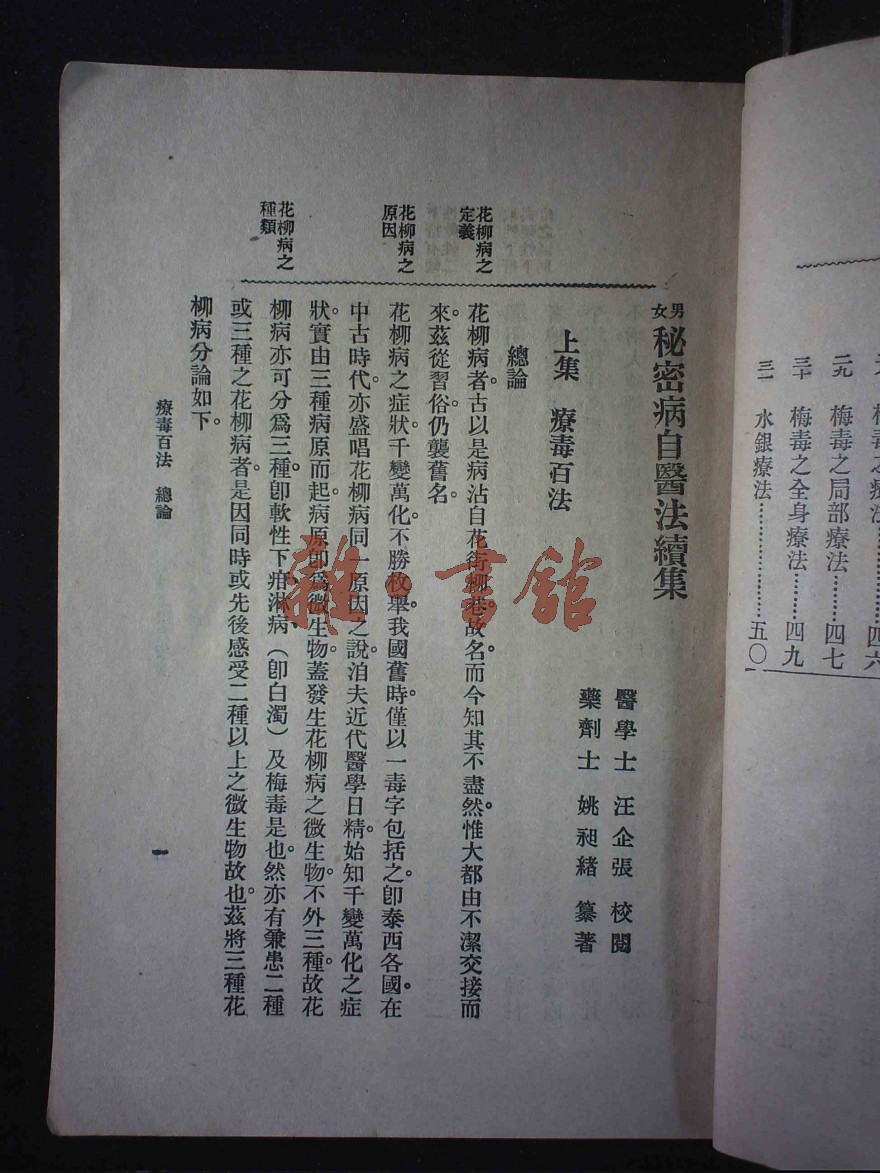 三一 水銀療法………………五〇
三十 梅毒之全身療法………四九
二九 梅毒之局部療法………四七
四六
男女 秘密病自醫法續集
醫學士 汪企張 校閱
藥劑士 姚昶緒 纂著
上集 療毒百法
總論
花柳病之定義
花柳病者。古以是病沾自花街柳巷。故名。而今知其不盡然。惟大都由不潔交接而
來。茲從習俗。仍襲舊名。
花柳病之原因
花柳病之症狀。千變萬化。不勝枚舉。我國舊時。僅以一毒字包括之。卽泰西各國。在
中古時代。亦盛唱花柳病同一原因之說。洎夫近代醫學日精。始知千變萬化之症
狀。實由三種病原而起。病原卽爲微生物。蓋發生花柳病之微生物。不外三種。故花
花柳病之種類
柳病亦可分爲三種。卽軟性下疳淋病（卽白濁）及梅毒是也。然亦有兼患二種
或三種之花柳病者。是因同時或先後感受二種以上之微生物故也。茲將三種花
柳病分論如下。
療毒百法 總論
一
雜·書館